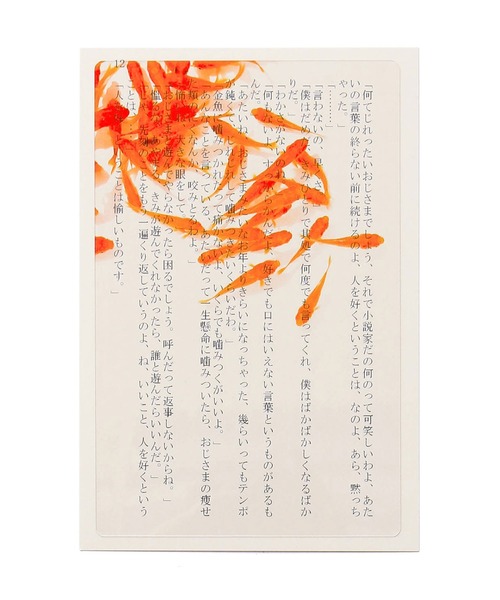 12
「何てじれったいおじさまでしょう、それで小説家だの何のって可笑しいわよ、あた
いの言葉の終らない前に続けるのよ、人を好くということは、なのよ、あら、黙っち
ゃった。」
「………」
「言わないの、早くさ
「僕はだめだ、きみひとりで其処で何度でも言ってくれ、僕はばかばかしくなるばか
りだ。」
「わからないのね
「何もないよ、すっからかんだよ、好きでも口にはいえない言葉というものがあるも
んだ。」
「あたいね、おじさまみたいなお年よりきらいになっちゃった、幾らいってもテンポ
が鈍く 噛みつきたいくらいだわ。」
「金魚に噛みつかれたって痛かないよ、いくらでも噛みつくがいいよ。」
あんなことを言っている、あたいだって一生懸命に噛みついたら、おじさまの痩せ
頬の 咬みとるわよ。」
大きな眼をして
遊んでやらなかったら困るでしょう。呼んだって返事しないからね。」
きみが遊んでくれなかったら、誰と遊んだらいいんだ。」
先刻のことをもう一遍くり返していうのよ、ね、いいこと、人を好くという
ことは
「人を うことは愉しいものです。」